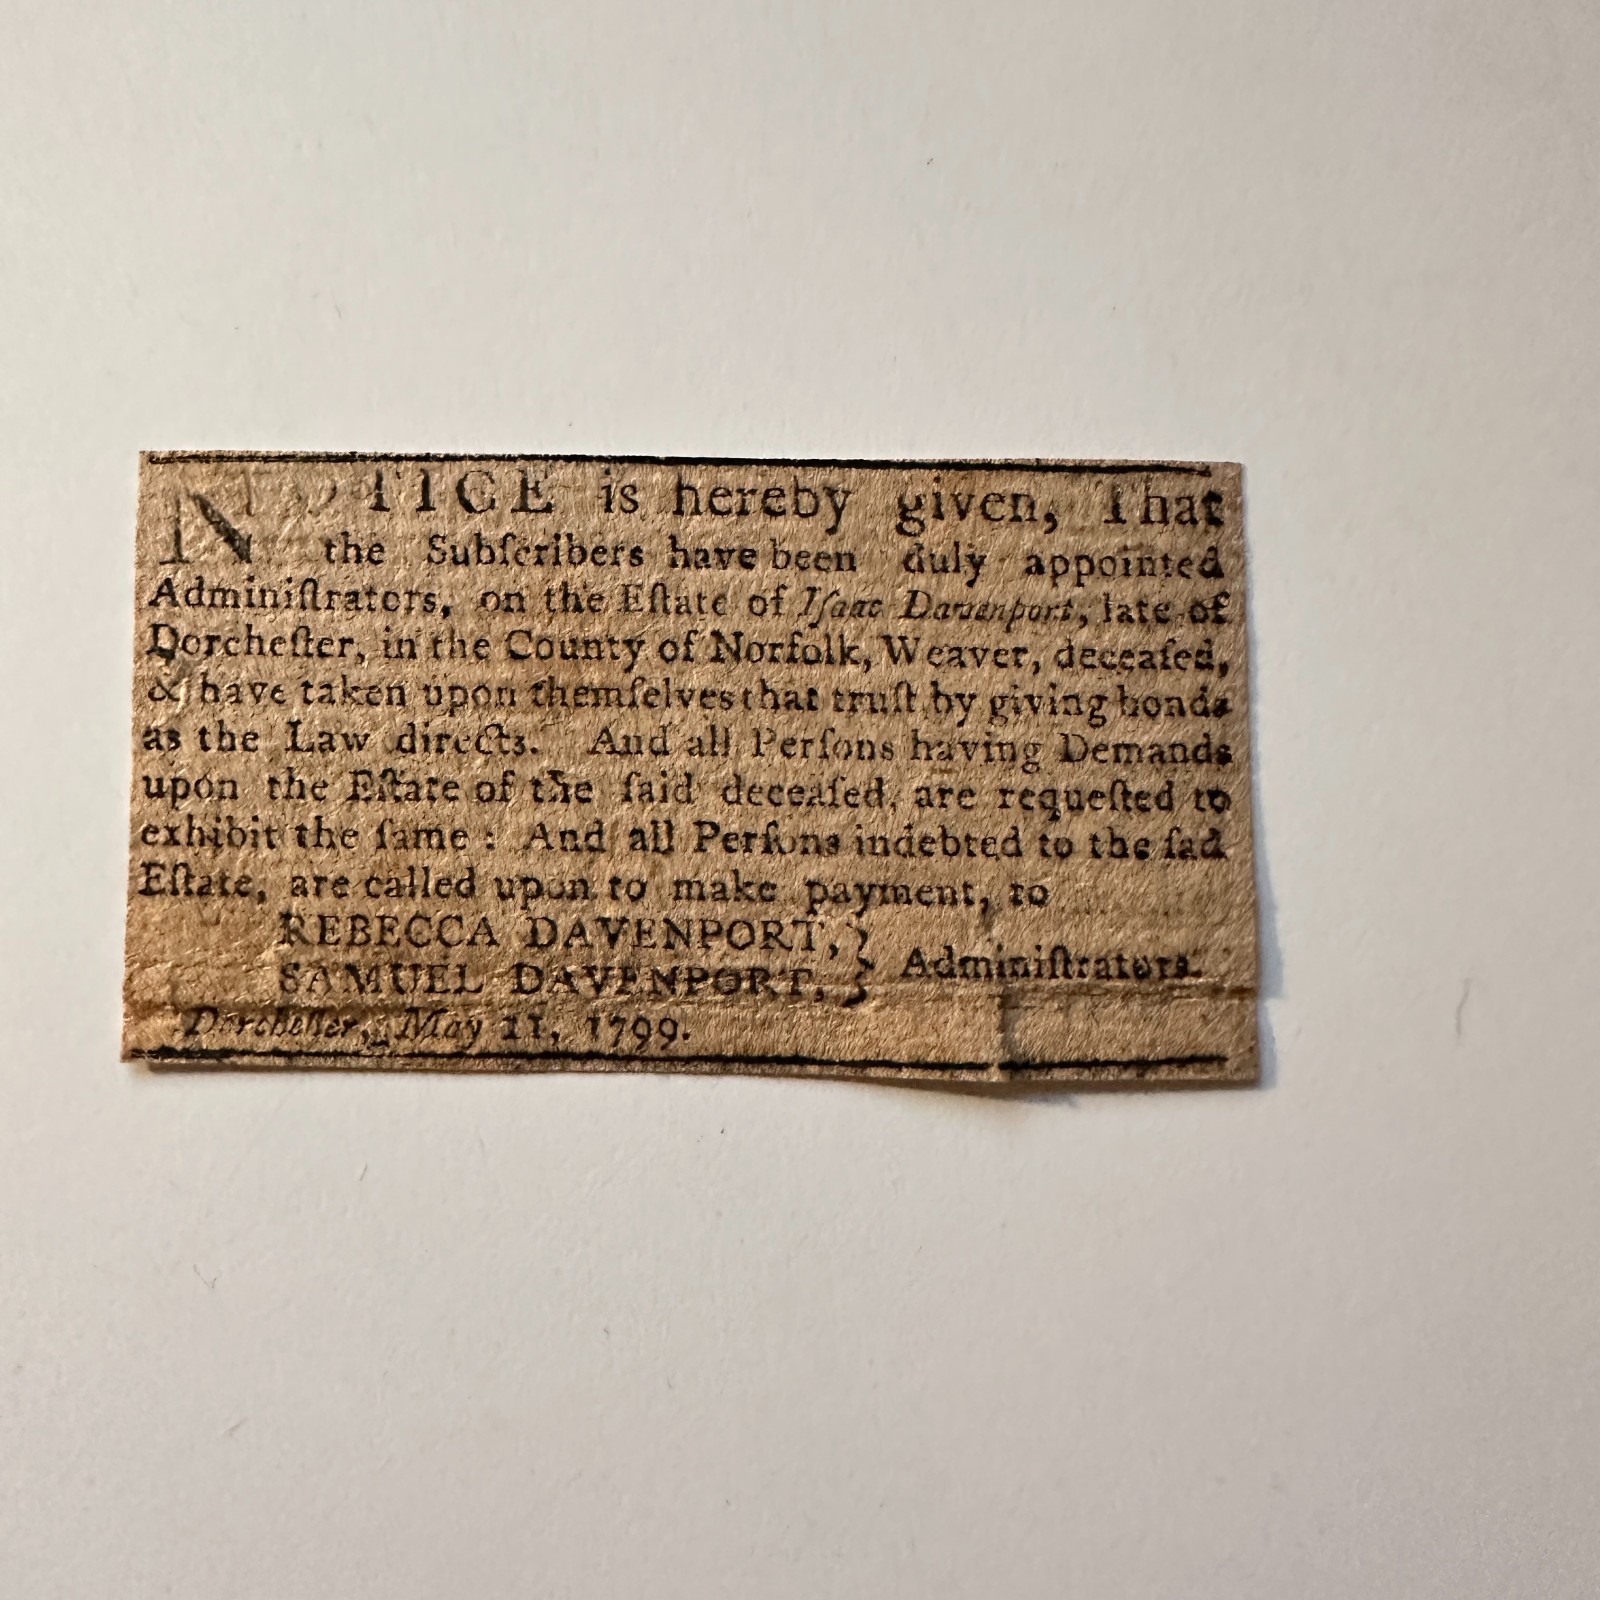 NOTICE is hereby given, That
the Subſcribers have been duly appointed
Adminiſtrators, on the Eſtate of Iſaac Davenport, late of
Dorcheſter, in the County of Norfolk, Weaver, deceaſed,
& have taken upon themſelves that truſt by giving bonds
as the Law directs. And all Perſons having Demands
upon the Eſtate of the ſaid deceaſed, are requeſted to
exhibit the ſame : And all Perſons indebted to the ſad
Eſtate, are called upon to make payment, to
REBECCA DAVENPORT, }
SAMUEL DAVENPORT, } Adminiſtrators.
Dorcheſter, May 11, 1799.